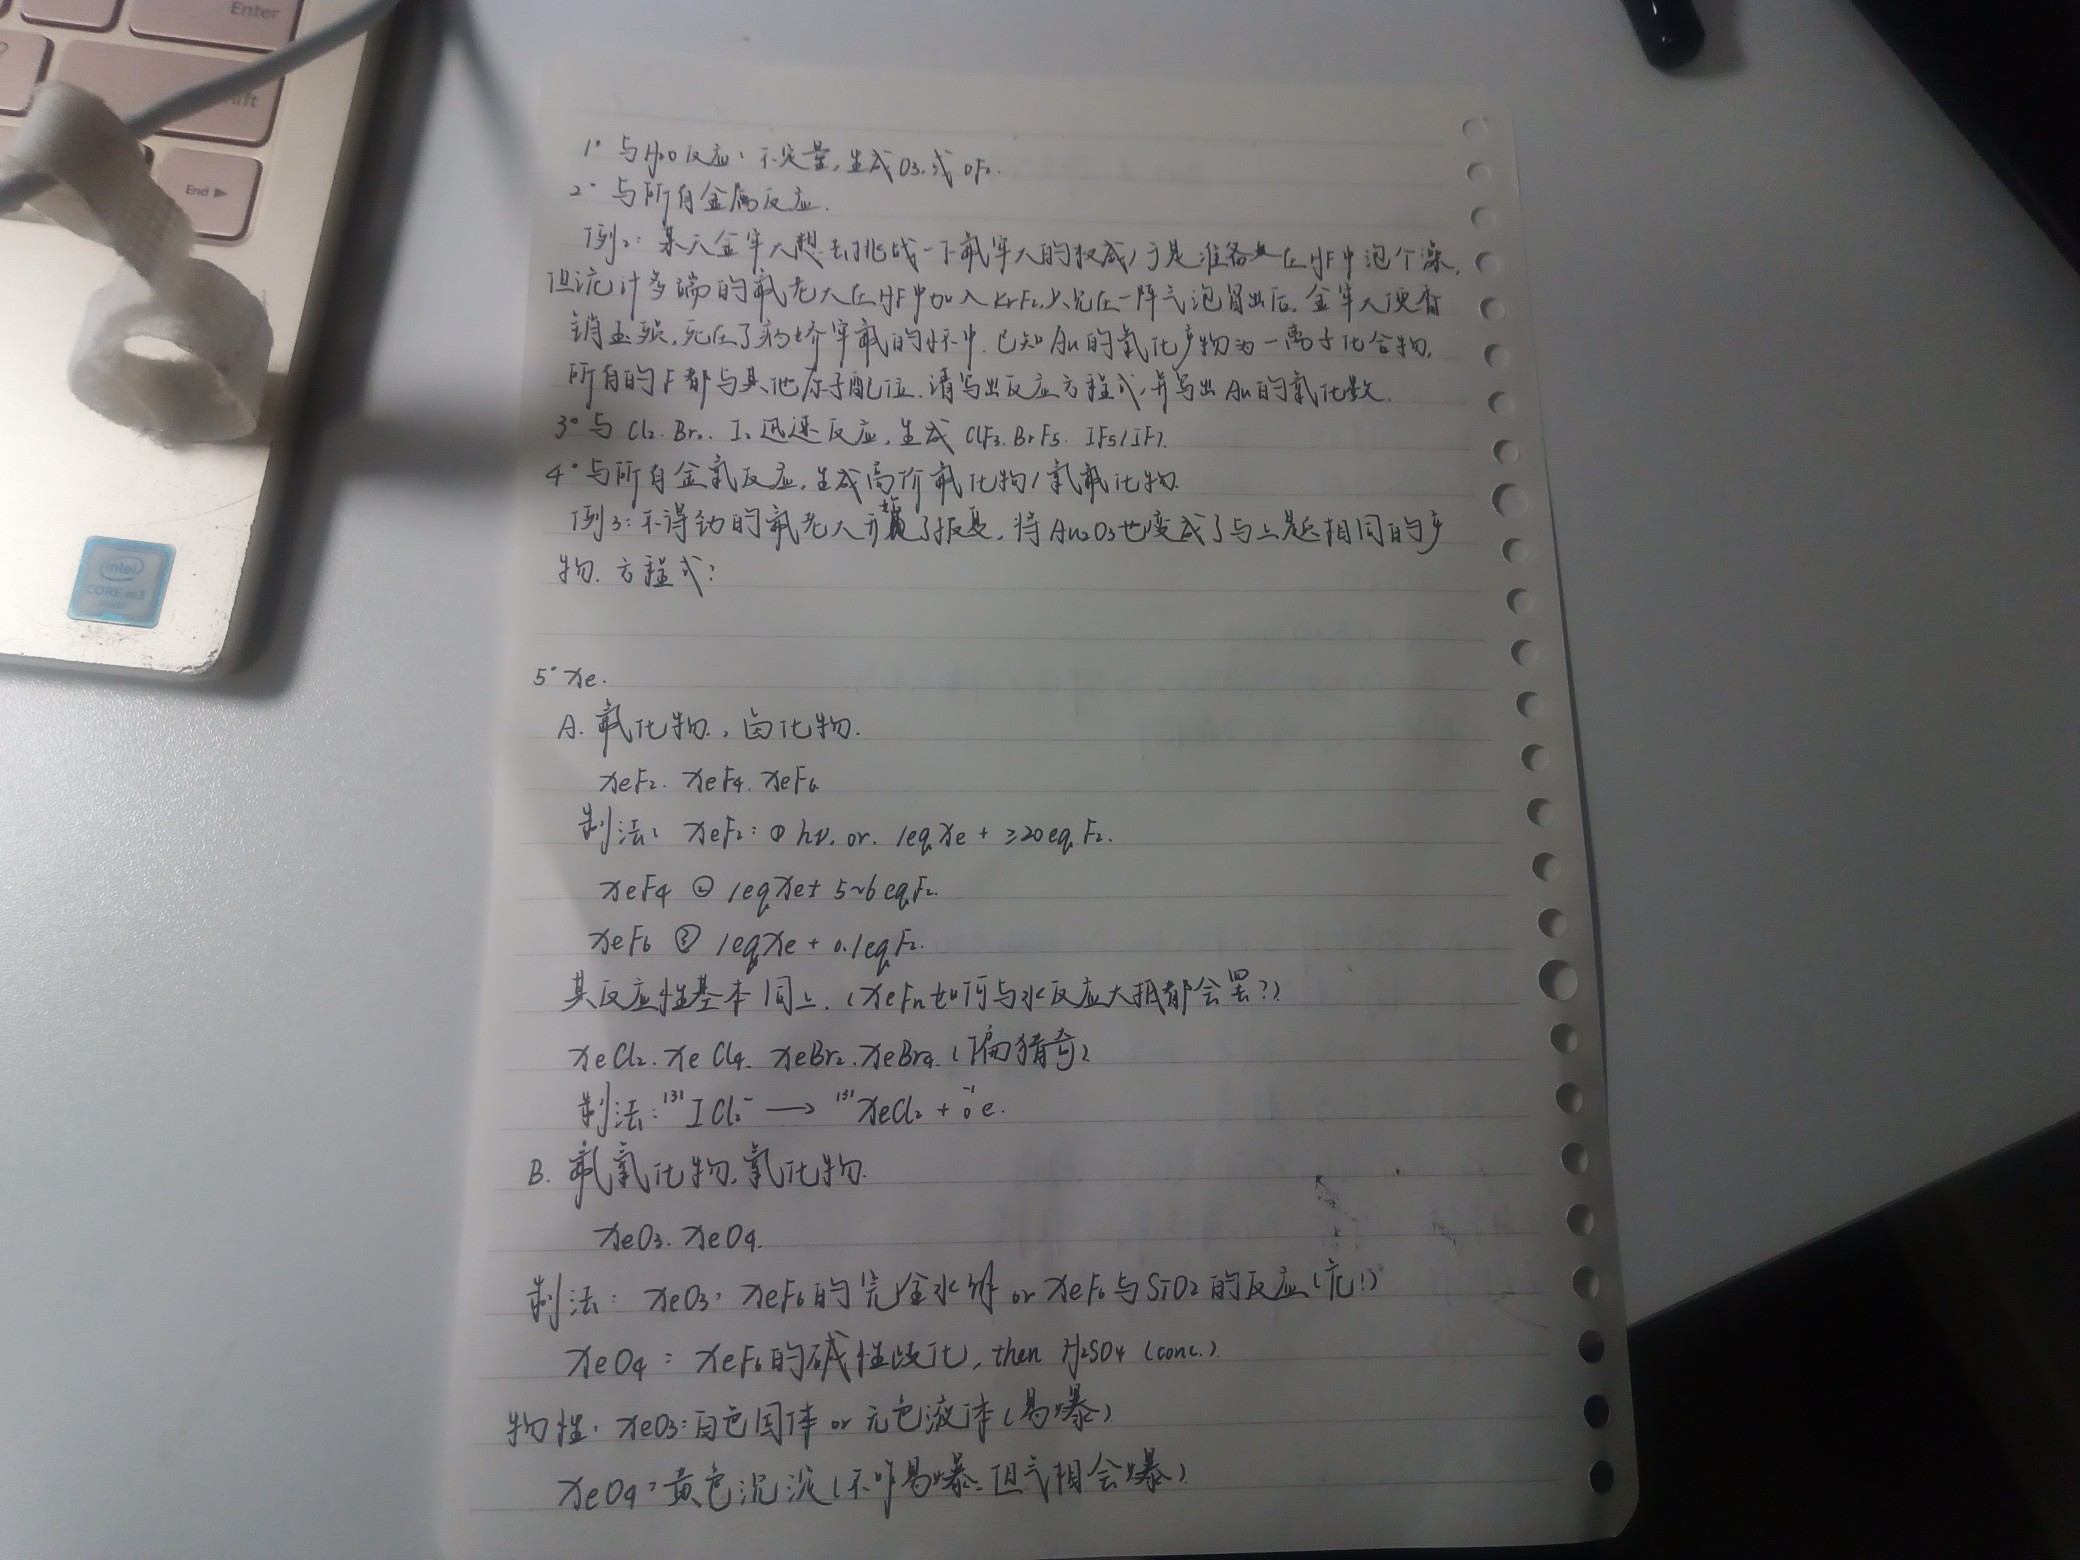 Enter
End ▶
intel
CORE m3
1° 与H₂O反应：不定量，生成O₃或OF₂.
2° 与所有金属反应.
例2：某天金牢大想去挑战一下氟牢大的权威，于是准备在HF中泡个澡，
但诡计多端的氟老大在HF中加入KrF₂，只见在一阵气泡冒出后，金牢大便香
消玉殒，死在了病娇牢氟的怀中. 已知Au的氧化产物为一离子化合物，
所有的F都与其他原子配位. 请写出反应方程式，并写出Au的氧化数.
3° 与Cl₂. Br₂. I₂ 迅速反应，生成 ClF₃. BrF₅. IF₅/IF₇.
4° 与所有金氧反应，生成高价氟化物/氧氟化物.
例3：不得劲的氟老大开展了报复，将Au₂O₃也变成了与上题相同的产
物. 方程式？
5° Xe.
A. 氟化物、卤化物.
XeF₂. XeF₄. XeF₆
制法：XeF₂：① hν. or. 1eq. Xe + ≥20eq. F₂.
XeF₄ ② 1eq. Xe + 5~6 eq. F₂.
XeF₆ ③ 1eq. Xe + 0.1eq. F₂.
其反应性基本同上.（XeFₙ如何与水反应大抵都会罢？）
XeCl₂. XeCl₄. XeBr₂. XeBr₄.（偏猎奇）
制法：¹³¹ICl₂⁻ ⟶ ¹³¹XeCl₂ + ⁻¹₀e.
B. 氟氧化物，氧化物.
XeO₃. XeO₄.
制法：XeO₃：XeF₆的完全水解 or XeF₆与SiO₂的反应（危！）
XeO₄：XeF₆的碱性歧化，then H₂SO₄ (conc.)
物性：XeO₃：白色固体 or 无色液体（易爆）
XeO₄：黄色沉淀（不咋易爆. 但气相会爆）